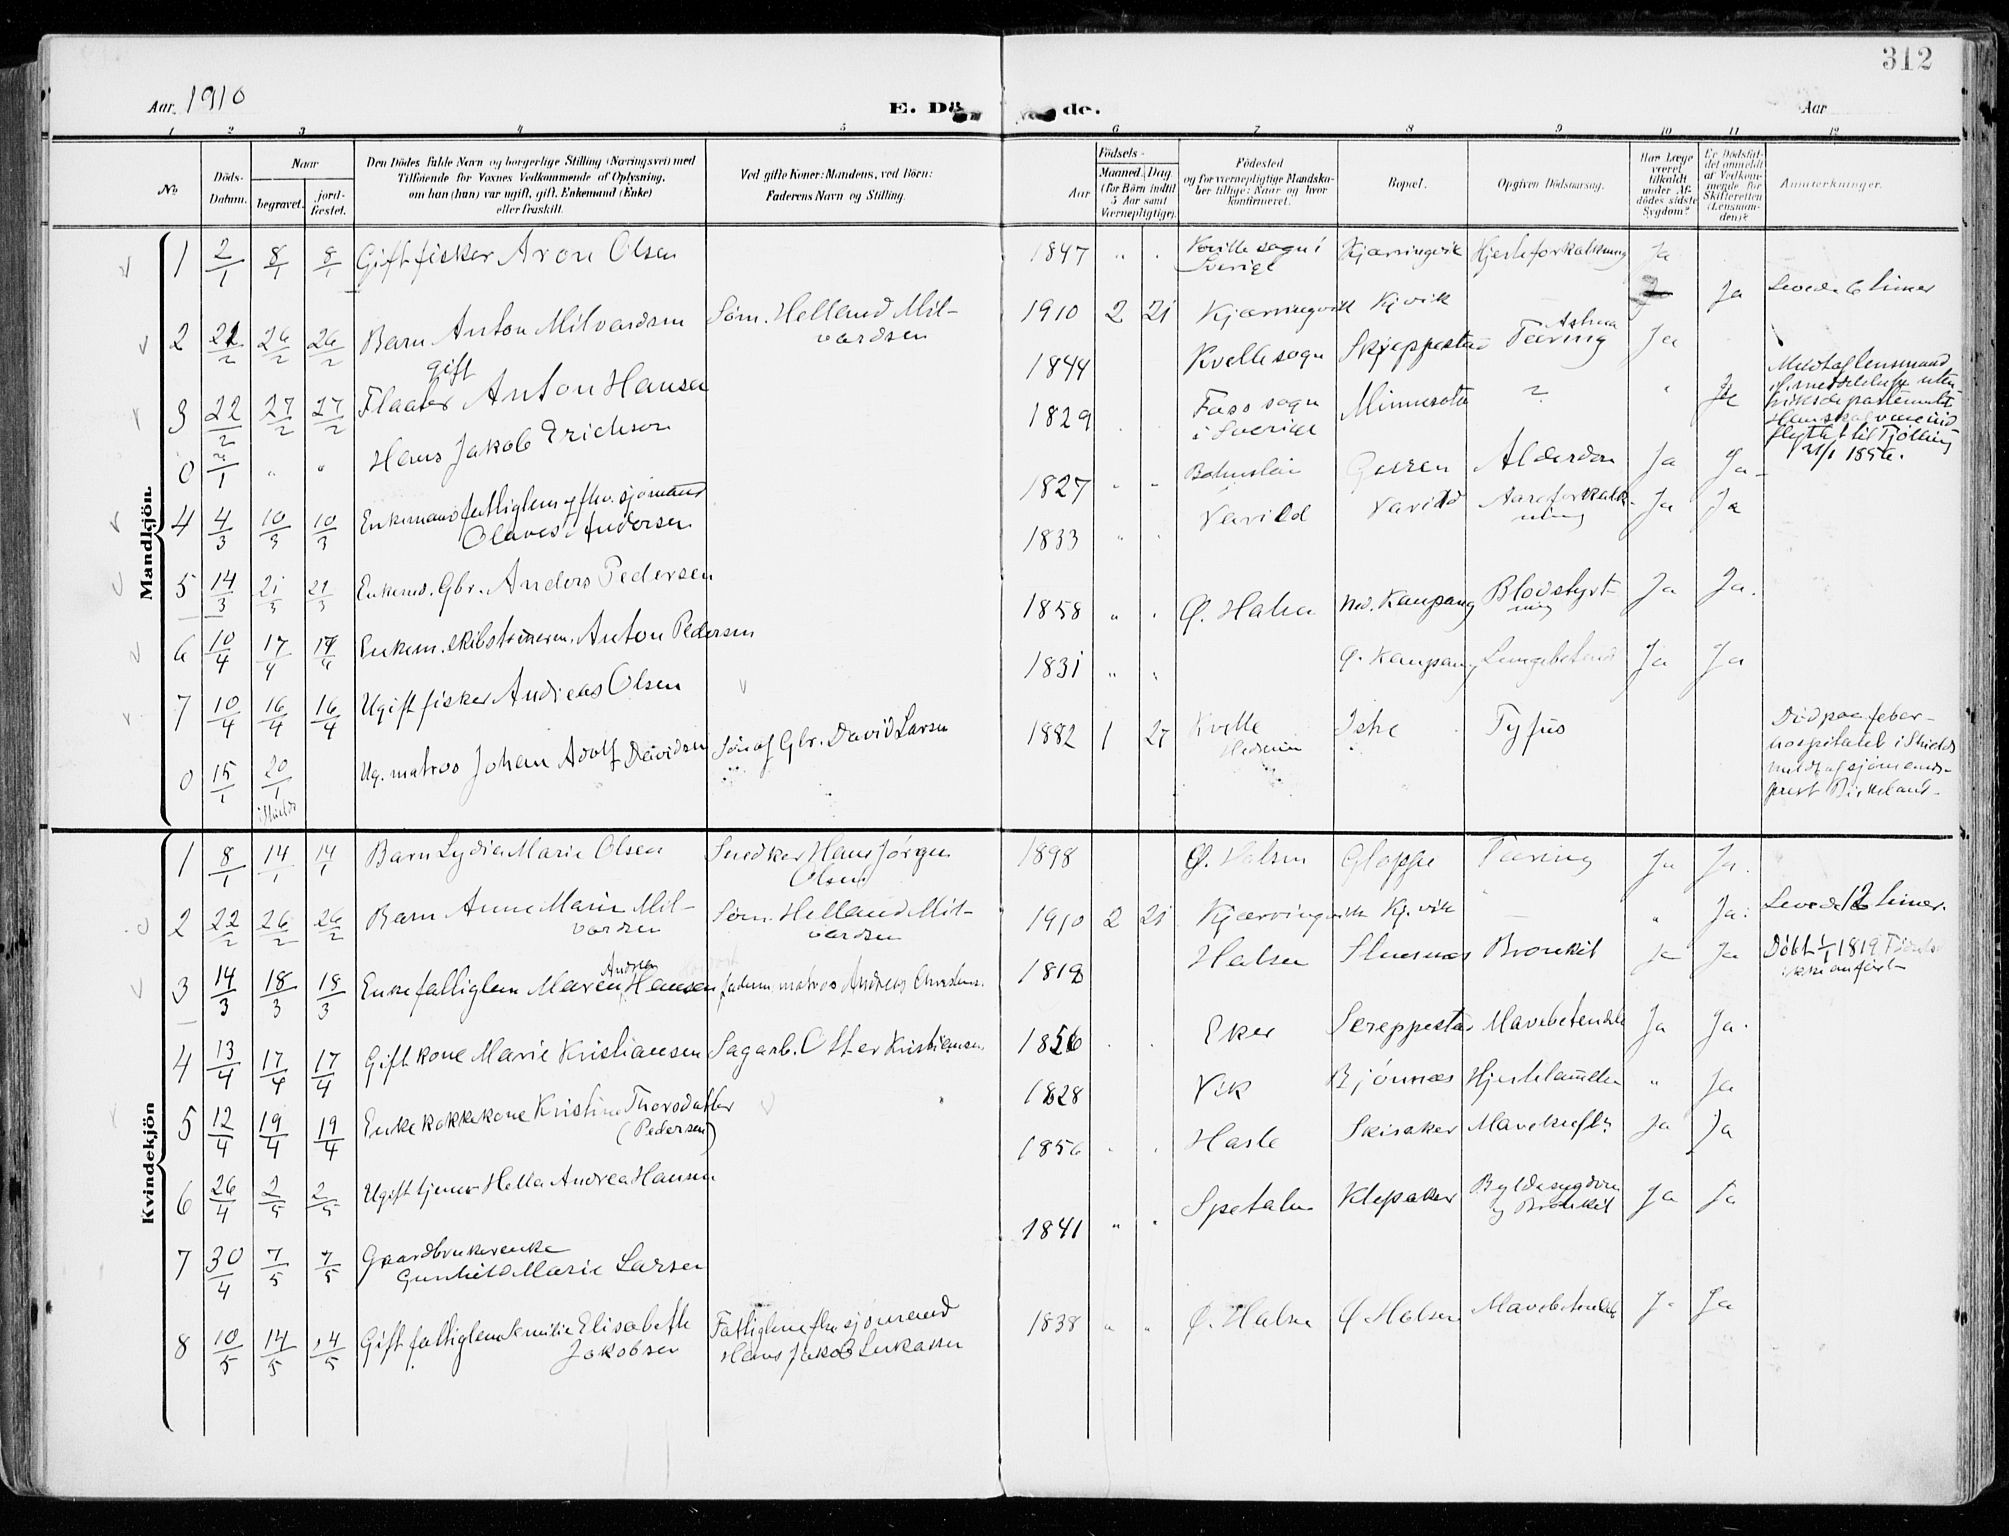 312
Aar 1910
E. Dö de.
Aar
1 2 3 4 5 6 7 8 9 10 11 12
No.
Döds-Datum.
Naar
begravet. jord-fæstet.
Den Dödes fulde Navn og borgerlige Stilling (Næringsvei) med
Tilföiende for Voxnes Vedkommende af Oplysning,
om han (hun) var ugift, gift, Enkemand (Enke)
eller fraskilt.
Ved gifte Koner: Mandens, ved Börn:
Faderens Navn og Stilling.
Födsels-
Aar
Maaned. Dag.
(for Börn indtil
5 Aar samt
Værnepligtige).
Födested
og for værnepligtige Mandska-
ber tillige: Naar og hvor
konfirmeret.
Bopæl.
Opgiven Dödsaarsag.
Har Læge
været
tilkaldt
under Af-
dödes sidste
Sygdom?
Er Dödsfal-
det anmeldt
af Vedkom-
mende for
Skifteretten
(Lensman-
den)?
Anmærkninger.
Mandkjön.
1 2/1 8/1 8/1 Gift fisker Aron Olsen 1847 " Kville sogn i Sverige Kjærringvik Hjerteforkalkning Ja
2 22/2 26/2 26/2 Barn Anton Milvardsen Søm. Helland Mil-
vardsen 1910 2 21 Kjærringvik Kjvik Ja Levede 6 timer
3 22/2 27/2 27/2 gift
Anton Hansen 1844 Kvelle sogn Skreppestad Tæring Ja
0 /1 " " Hans Jakob Erichson 1829 Foss sogn
i Sverige Minnesota ? "
flyttet til Tjølling
1856.
4 4/3 10/3 10/3 Enkemand fattiglem fhv. sjømand
Olaves Andersen 1827 " " Bohuslän Gurren Alderdom Ja Ja
5 14/3 21/3 21/3 Enkemd. Gbr. Anders Pedersen 1833 " Varild Varild Aareforkalk-
ning Ja Ja
6 10/4 17/4 17/4 Enkem. skibstømrerm. Anton Pedersen 1858 " Ø. Halsen Ned. Kaupang Blodstyrt-
ning Ja Ja.
7 10/4 16/4 16/4 Ugift fisker Andreas Olsen 1831 " Ø. Kaupang Lungebetend Ja Ja
0 15/1 20/1
i Shields Ug. matros Johan Adolf Davidsen Søn af Gbr. David Larsen 1882 1 27 Kvelle
Hedrum Istre Tyfus Død paa feber-
hospitalet i Shields
meldt af sjømands-
prest Birkeland.
Kvindekjön
1 8/1 14/1 14/1 Barn Lydia Marie Olsen Snedker Hans Jørgen
Olsen 1898 Ø. Halsen Gloppe Tæring Ja Ja.
2 22/2 26/2 26/2 Barn Anne Marie Mil-
vardsen Søm. Helland Mil-
vardsen 1910 2 21 Kjærringvik Kj.vik — " Ja. Levede 12 timer.
3 14/3 18/3 18/3 Enke fattiglem Maren Andrea Hansen fadern. matros Andreas Christens. 1818 Halsen Bronkit Ja Ja Døbt 1/1 1819 Fødsels
ikke anført
4 13/4 17/4 17/4 Gift kone Marie Kristiansen Sagarb. Otter Kristiansen 1856 Eker Screppestad Mavebetendelse Ja Ja.
5 12/4 19/4 19/4 Enke kokkekone Kristine Thorsdatter
(Pedersen) 1828 Vik Bjønnes Hjertelammelse " Ja
6 26/4 2/5 2/5 Ugift tjener Hella Andrea Hansen 1856 Hasle Skisaker Mavekreft Ja Ja
7 30/4 7/5 7/5 Gaardbrukerenke
Gunhild Marie Larsen 1841 " " Spetalen Klepaker Byldesygdom
og Bronkit Ja Ja
8 10/5 14/5 14/5 Gift fattiglem Emilie Elisabeth
Jakobsen Fattiglem fhv sjømand
Hans Jakob Lukassen 1838 " " Ø. Halsen Ø. Halsen Mavebetendelse Ja Ja